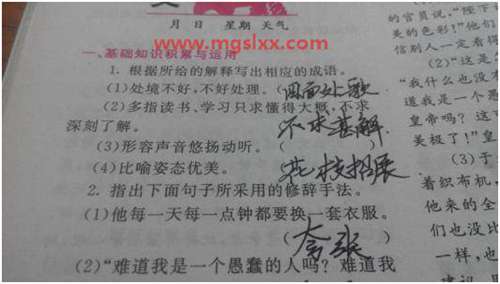 月 日 星期 天气
www.mgslxx.com
一、基础知识积累与运用
1. 根据所给的解释写出相应的成语。
(1)处境不好,不好处理。(四面处歌
(2)多指读书、学习只求懂得大概,不求
深刻了解。(不求甚解
(3)形容声音悠扬动听。(
(4)比喻姿态优美。(花枝招展
2. 指出下面句子所采用的修辞手法。
(1)他每一天每一点钟都要换一套衣服。
(夸张
(2)“难道我是一个愚蠢的人吗?难道我
的官员说,“陛下
美的色彩!”他们
信别人一定看得
(2)“这是
“我什么也没
道我是一个愚
皇帝吗?这
美极了!”皇
(3)于
着织布机,
他来的全
们也没比
一样,也